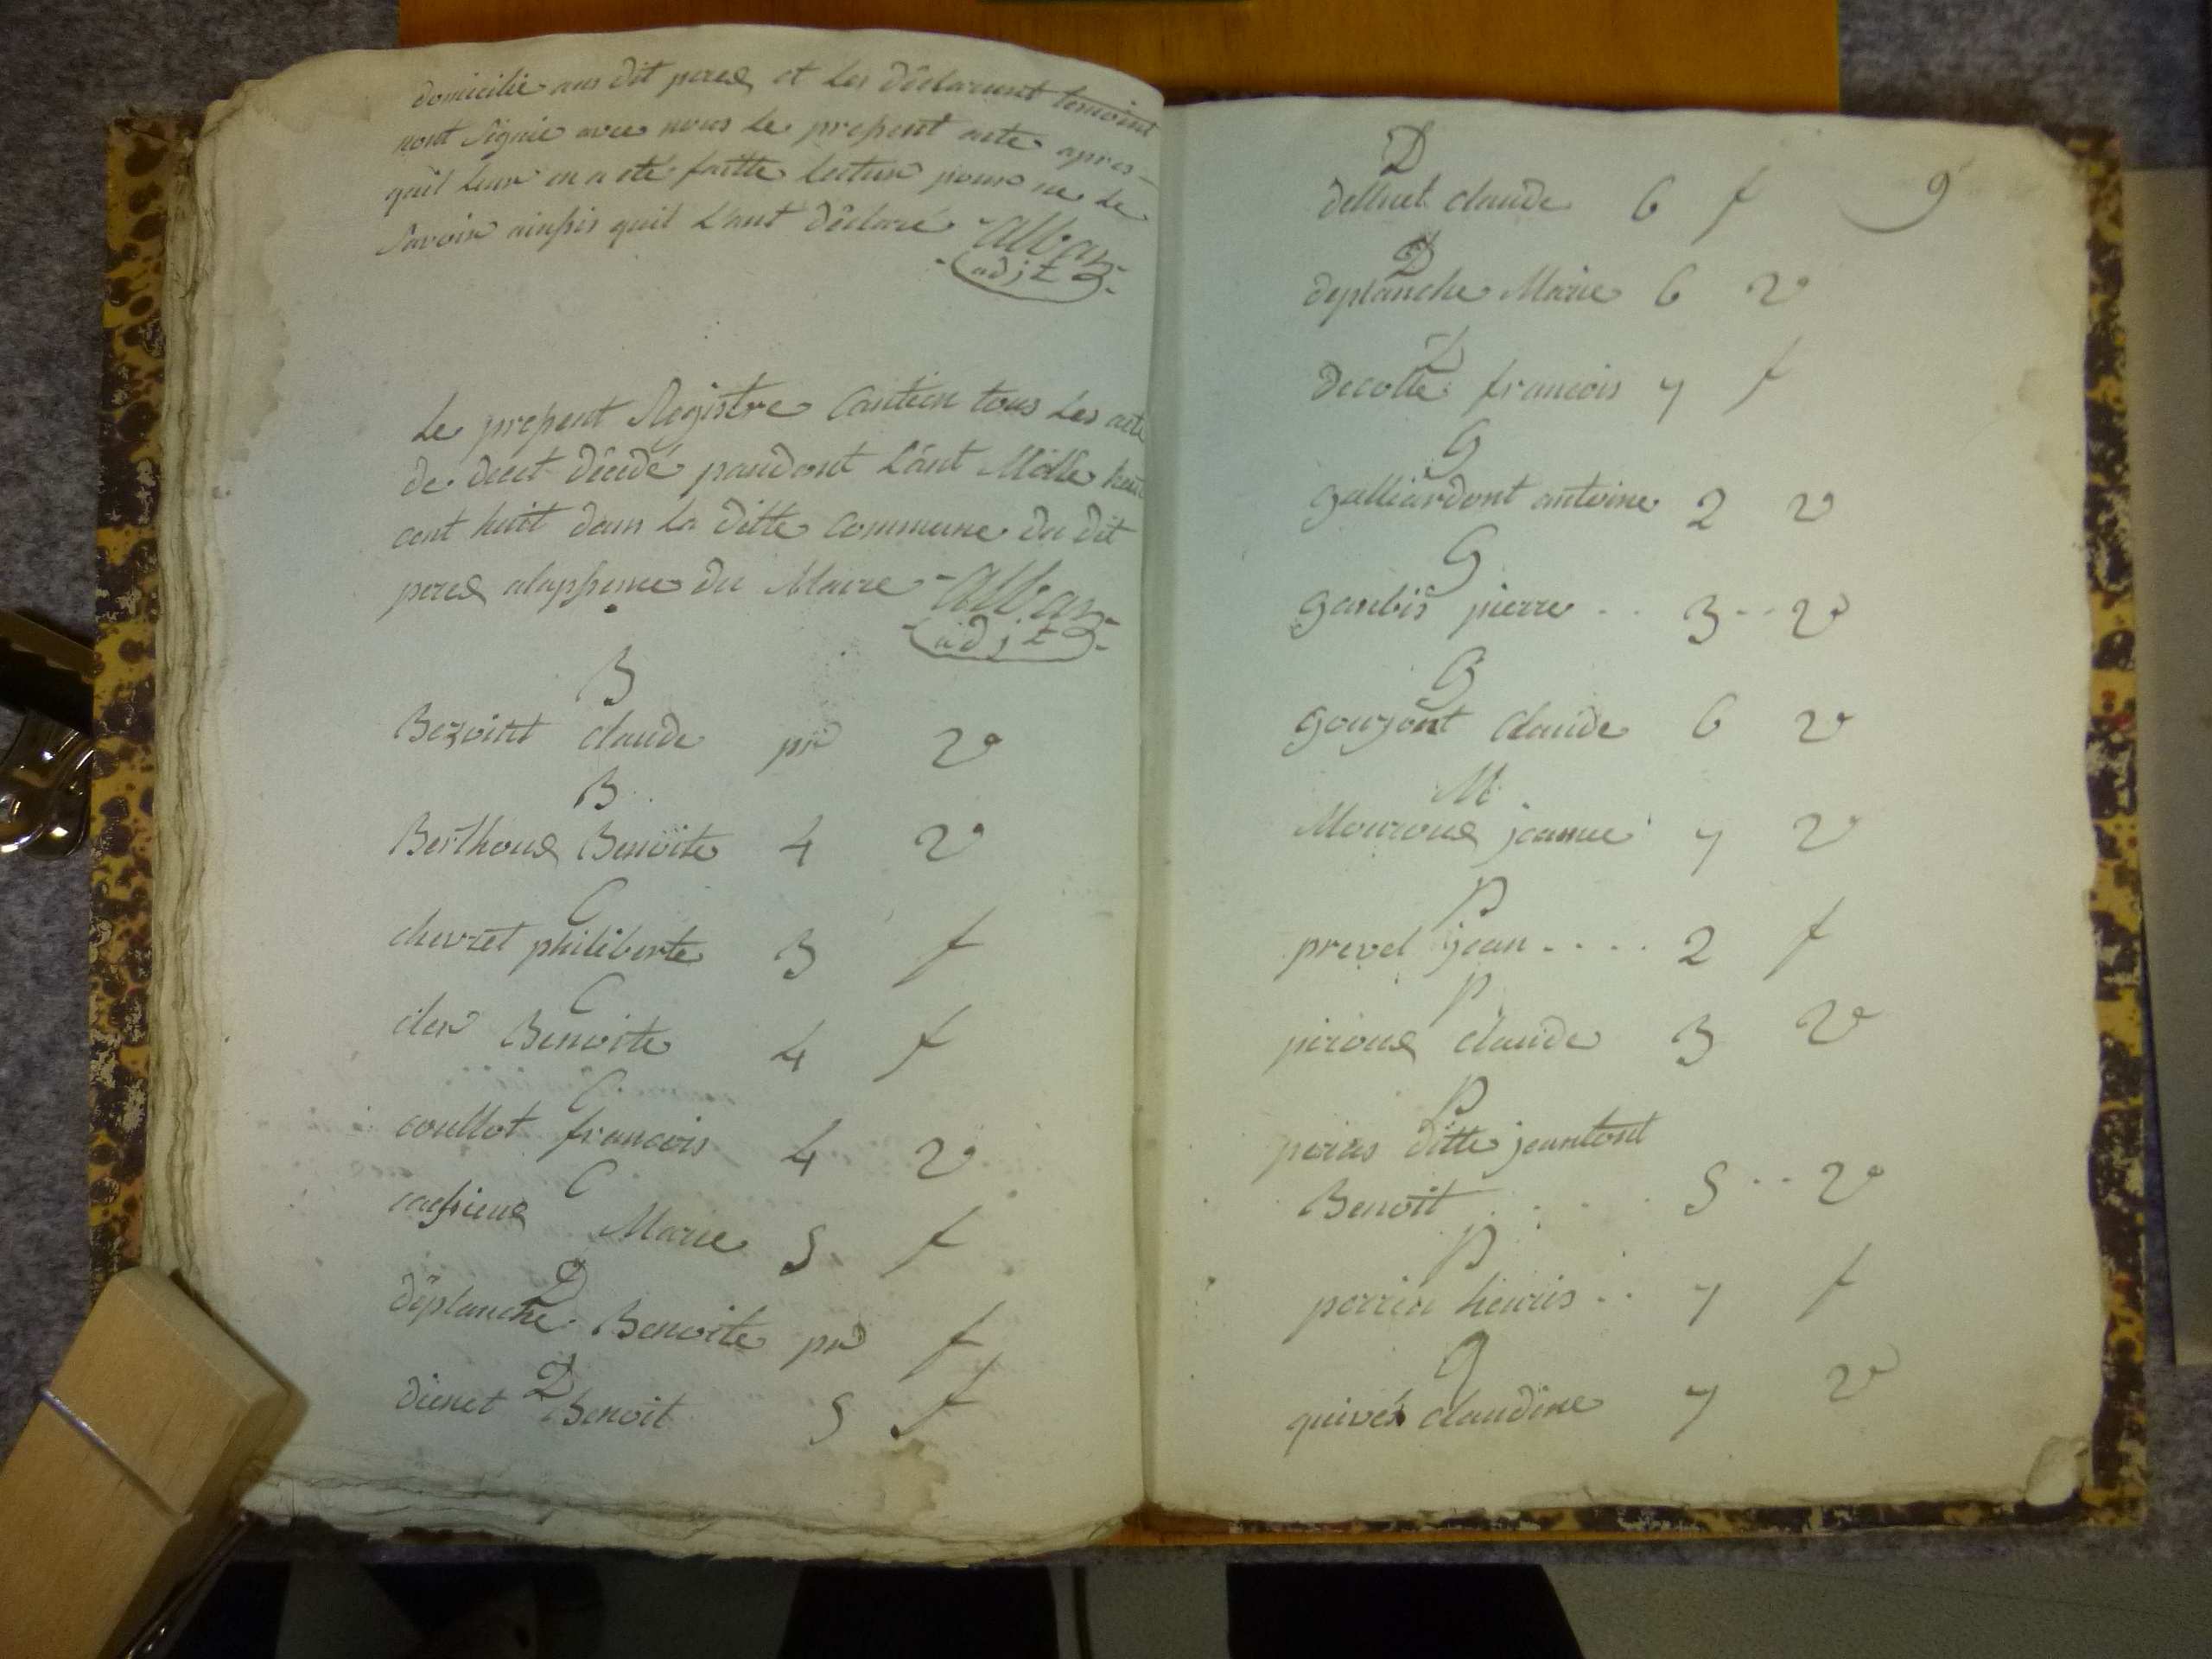 domicilie aus dit peres et les déclarent temoint
nont signié avec nous le present acte apres
quil leur en a eté faitte lecture pour ne le
savoir ainssis quil l'ant déclaré Alban
adjt
le present Registre Contien tous les acte
de decet décédé pandont l'ânt Mille huit
cent huit dans la ditte commune du dit
peres alapsence du Maire Alban
adjt
B
Bezoint claude pr v
B
Berthoue Benoite 4 v
C
chevret philiberte 3 f
C
cler Benoite 4 f
C
coullot francois 4 v
C
cassieue Marie 5 f
D
déplanche Benoite pr f
D
dienet Benoit 5 f
9
D
claude 6 f
D
deplanche Marie 6 v
D
decolle francois 7 f
G
galliardont antoine 2 v
G
ganbis pierre . . 3 . . v
G
goujont claude 6 v
M
Mouroue jeanne 7 v
P
prevel jean . . . . 2 f
P
piroue claude 3 v
P
peras ditte jeantont
Benoit . . . . 5 . . v
P
perrin henris . . 7 f
q
quivés claudine 7 v